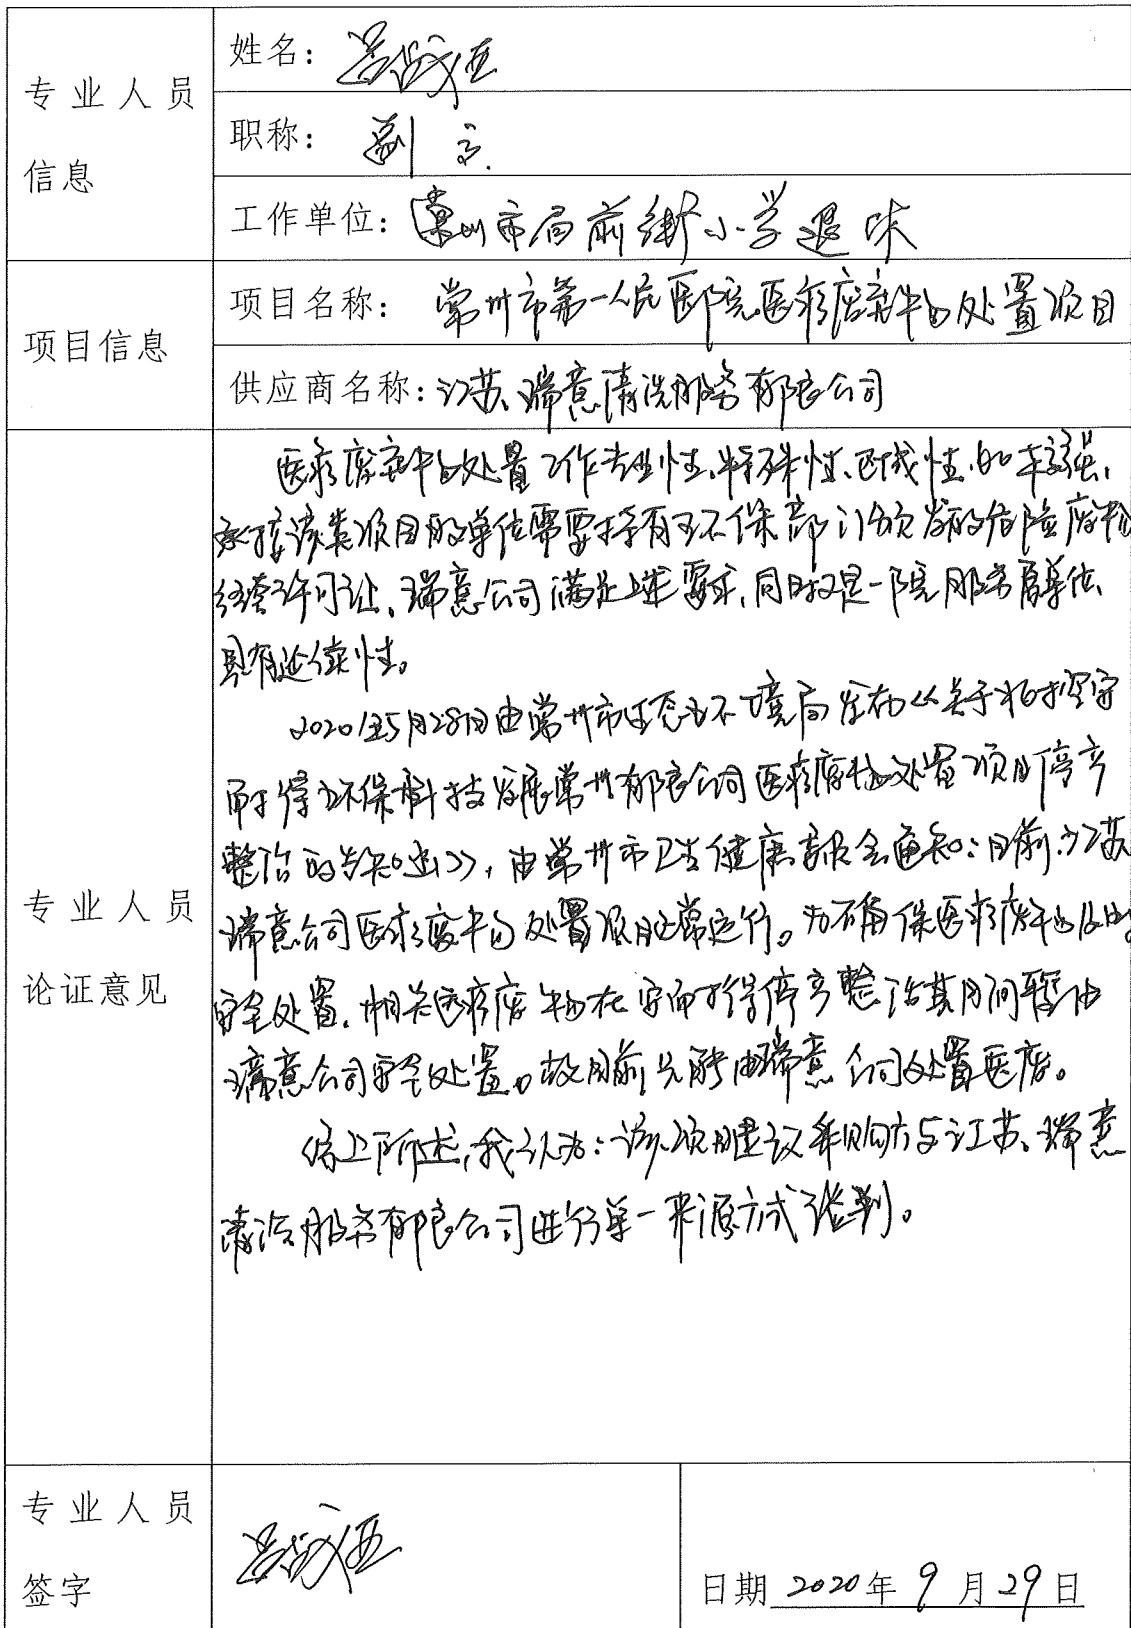 专业人员
信息
姓名：
职称：副高
工作单位：常州市局前街小学退休
项目信息
项目名称：常州市第一人民医院医疗废弃物处置项目
供应商名称：江苏瑞意清洗服务有限公司
专业人员
论证意见
医疗废弃物处置工作专业性、特殊性、区域性、的本较强，
承接该类项目的单位需要持有环保部门颁发的危险废物
经营许可证、瑞意公司满足上述要求，同时又是一院服务原单位
具有延续性。
2020年5月28日由常州市生态环境局发布《关于柏坚
环保科技发展常州有限公司医疗废物处置项目停产
整治的告知函》，由常州市卫生健康委员会通知：目前江苏
瑞意公司医疗废物处置项目正常运行。为确保医疗废物及时
安全处置，相关医疗废物在停产整治期间暂由
瑞意公司安全处置。故目前只能由瑞意公司处置医废。
综上所述，我认为：该项目建议采购方与江苏瑞意
清洗服务有限公司进行单一来源方式谈判。
专业人员
签字
日期 2020年9月29日